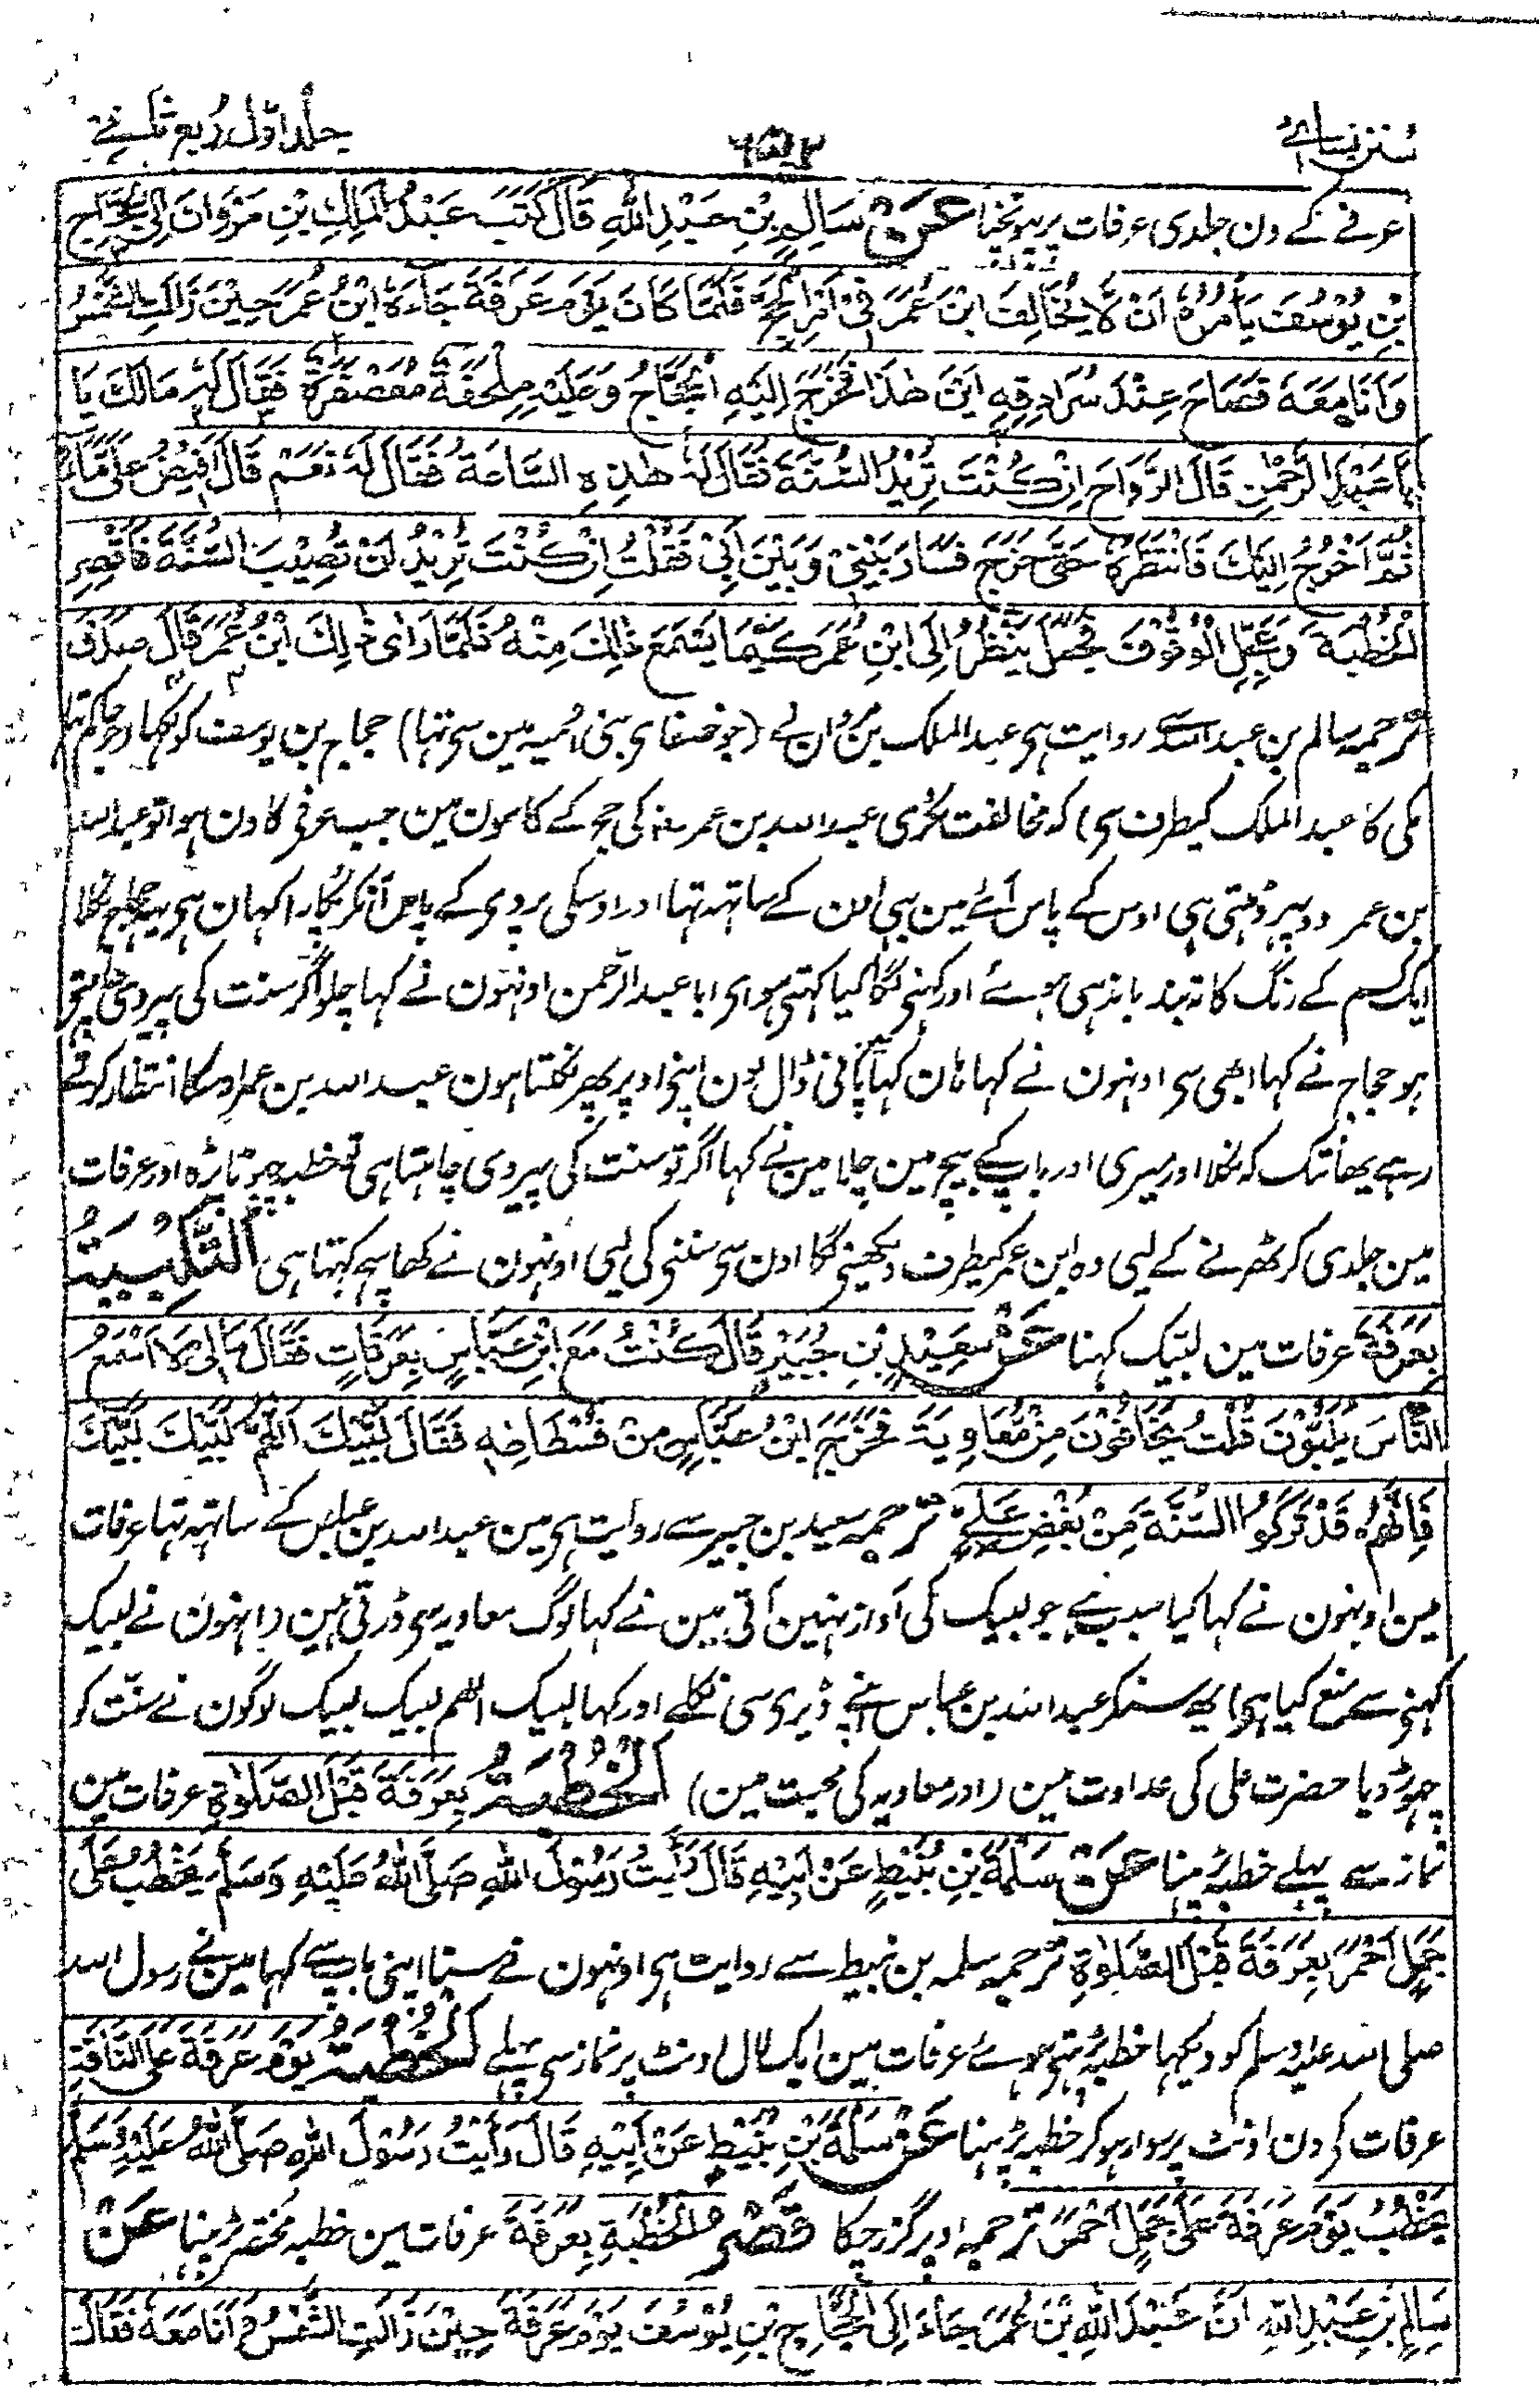 سنن نسائی
۶۵۳
جلد اول ربع ثانی
عرفے کے دن جلدی عرفات پر پہونچنا عَنْ سَالِمِ بْنِ عَبْدِ اللهِ قَالَ كَتَبَ عَبْدُ الْمَلِكِ بْنِ مَرْوَانَ اِلَى الْحَجَّاجِ
بْنِ يُوْسُفَ يَأْمُرُهُ اَنْ لَا يُخَالِفَ ابْنَ عُمَرَ فِيْ اَمْرِ الْحَجِّ فَلَمَّا كَانَ يَوْمَ عَرَفَةَ جَاءَهُ ابْنُ عُمَرَ حِيْنَ زَالَتِ الشَّمْسُ
وَاَنَا مَعَهُ فَصَاحَ عِنْدَ سُرَادِقِهِ اَيْنَ هٰذَا فَخَرَجَ اِلَيْهِ الْحَجَّاجُ وَعَلَيْهِ مِلْحَفَةٌ مُعَصْفَرَةٌ فَقَالَ لَهُ مَالَكَ يَا
اَبَا عَبْدِ الرَّحْمٰنِ قَالَ الرَّوَاحَ اِنْ كُنْتَ تُرِيْدُ السُّنَّةَ فَقَالَ لَهُ هٰذِهِ السَّاعَةَ فَقَالَ لَهُ نَعَمْ قَالَ اُفِيْضُ عَلَيَّ مَاءً
ثُمَّ اَخْرُجُ اِلَيْكَ فَانْتَظَرَهُ حَتّٰى خَرَجَ فَسَارَ بَيْنِيْ وَبَيْنَ اَبِيْ فَقُلْتُ اِنْ كُنْتَ تُرِيْدُ اَنْ تُصِيْبَ السُّنَّةَ فَاقْصِرِ
الْخُطْبَةَ وَعَجِّلِ الْوُقُوْفَ فَجَعَلَ يَنْظُرُ اِلَى ابْنِ عُمَرَ كَيْمَا يَسْمَعَ ذٰلِكَ مِنْهُ فَلَمَّا رَاٰى ذٰلِكَ ابْنُ عُمَرَ قَالَ صَدَقَ
ترجمہ سالم بن عبداللہ سے روایت ہی عبدالملک بن مروان نے (جو خلفای بنی امیہ مین سی تہا) حجاج بن یوسف کو لکہا (جو حاکم تہا
مکی کا عبدالملک کیطرف سی) کہ مخالفت نکری عبداللہ بن عمر کی حج کے کامون مین جب عرفی کا دن ہوا تو عبداللہ
بن عمر دوپہر ڈہلتی ہی اوس کے پاس آئے مین بہی اون کے ساتہہ تہا اور اوسکی پردی کے پاس آنکر پکارا کہان ہی یہہ حجاج نکلا
ایک کسم کے رنگ کا تہبند باندہی ہوئے اور کہنی لگا کیا کہتی ہو ای ابا عبدالرحمن اونہون نے کہا چلو اگر سنت کی پیروی چاہتی
ہو حجاج نے کہا ابہی سی اونہون نے کہا ہان کہا پانی ڈال لون اپنی اوپر پھر نکلتا ہون عبداللہ بن عمر اوسکا انتظار کرتے
رہے یھانتک کہ نکلا اور میری اور باپ کے بیچ مین چلا مین نے کہا اگر تو سنت کی پیروی چاہتا ہی تو خطبہ چھوٹا پڑہ اور عرفات
مین جلدی کر ٹھرنے کے لیی وہ ابن عمر کیطرف دیکھنی لگا اون سی سننی کی لیی اونہون نے کھا سچ کہتا ہی اَلتَّلْبِيَةُ
بِعَرَفَةَ عرفات مین لبیک کہنا عَنْ سَعِيْدِ بْنِ جُبَيْرٍ قَالَ كُنْتُ مَعَ ابْنِ عَبَّاسٍ بِعَرَفَاتٍ فَقَالَ مَا لِيْ لَا اَسْمَعُ
النَّاسَ يُلَبُّوْنَ قُلْتُ يَخَافُوْنَ مِنْ مُعَاوِيَةَ فَخَرَجَ ابْنُ عَبَّاسٍ مِنْ فُسْطَاطِهِ فَقَالَ لَبَّيْكَ اَللّٰهُمَّ لَبَّيْكَ لَبَّيْكَ
فَاِنَّهُمْ قَدْ تَرَكُوا السُّنَّةَ مِنْ بُغْضِ عَلِيٍّ ترجمہ سعید بن جبیر سے روایت ہی مین عبداللہ بن عباس کے ساتہہ تہا عرفات
مین اونہون نے کہا کیا سبب ہے جو لبیک کی آواز نہین آتی مین نے کہا لوگ معاویہ سی ڈرتی ہین (انہون نے لبیک
کہنی سے منع کیا ہی) یھ سنکر عبداللہ بن عباس اپنے ڈیری سی نکلے اور کہا لبیک اللہم لبیک لبیک لوگون نے سنت کو
چہوڑ دیا حضرت علی کی عداوت مین (اور معاویہ کی محبت مین) اَلْخُطْبَةُ بِعَرَفَةَ قَبْلَ الصَّلٰوةِ عرفات مین
نماز سے پہلے خطبہ پڑہنا عَنْ سَلَمَةَ بْنِ نُبَيْطٍ عَنْ اَبِيْهِ قَالَ رَاَيْتُ رَسُوْلَ اللهِ صَلَّى اللهُ عَلَيْهِ وَسَلَّمَ يَخْطُبُ عَلٰى
جَمَلٍ اَحْمَرَ بِعَرَفَةَ قَبْلَ الصَّلٰوةِ ترجمہ سلمہ بن نبیط سے روایت ہی اونہون نے سنا اپنی باپ سے کہا مین نے رسول اللہ
صلی اللہ علیہ وسلم کو دیکہا خطبہ پڑہتی ہوئے عرفات مین ایک لال اونٹ پر نماز سی پہلے اَلْخُطْبَةُ يَوْمَ عَرَفَةَ عَلَى النَّاقَةِ
عرفات کی دن اونٹ پر سوار ہو کر خطبہ پڑہنا عَنْ سَلَمَةَ بْنِ نُبَيْطٍ عَنْ اَبِيْهِ قَالَ رَاَيْتُ رَسُوْلَ اللهِ صَلَّى اللهُ عَلَيْهِ وَسَلَّمَ
يَخْطُبُ يَوْمَ عَرَفَةَ عَلٰى جَمَلٍ اَحْمَرَ ترجمہ اوپر گزر چکا قَصْرُ الْخُطْبَةِ بِعَرَفَةَ عرفات مین خطبہ مختصر پڑہنا عَنْ
سَالِمِ بْنِ عَبْدِ اللهِ اَنَّ عَبْدَ اللهِ بْنَ عُمَرَ جَاءَ اِلَى الْحَجَّاجِ بْنِ يُوْسُفَ يَوْمَ عَرَفَةَ حِيْنَ زَالَتِ الشَّمْسُ وَاَنَا مَعَهُ فَقَالَ